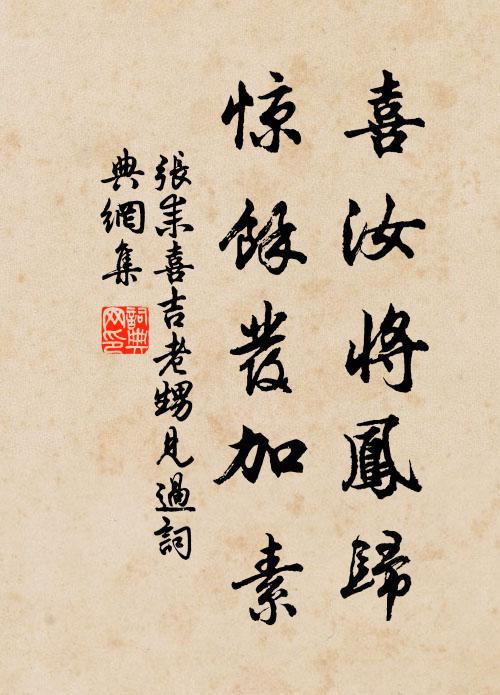 喜汝将鳳歸
惊餘发加素
張耒喜吉老甥見過詞
典網集
詞典
网印